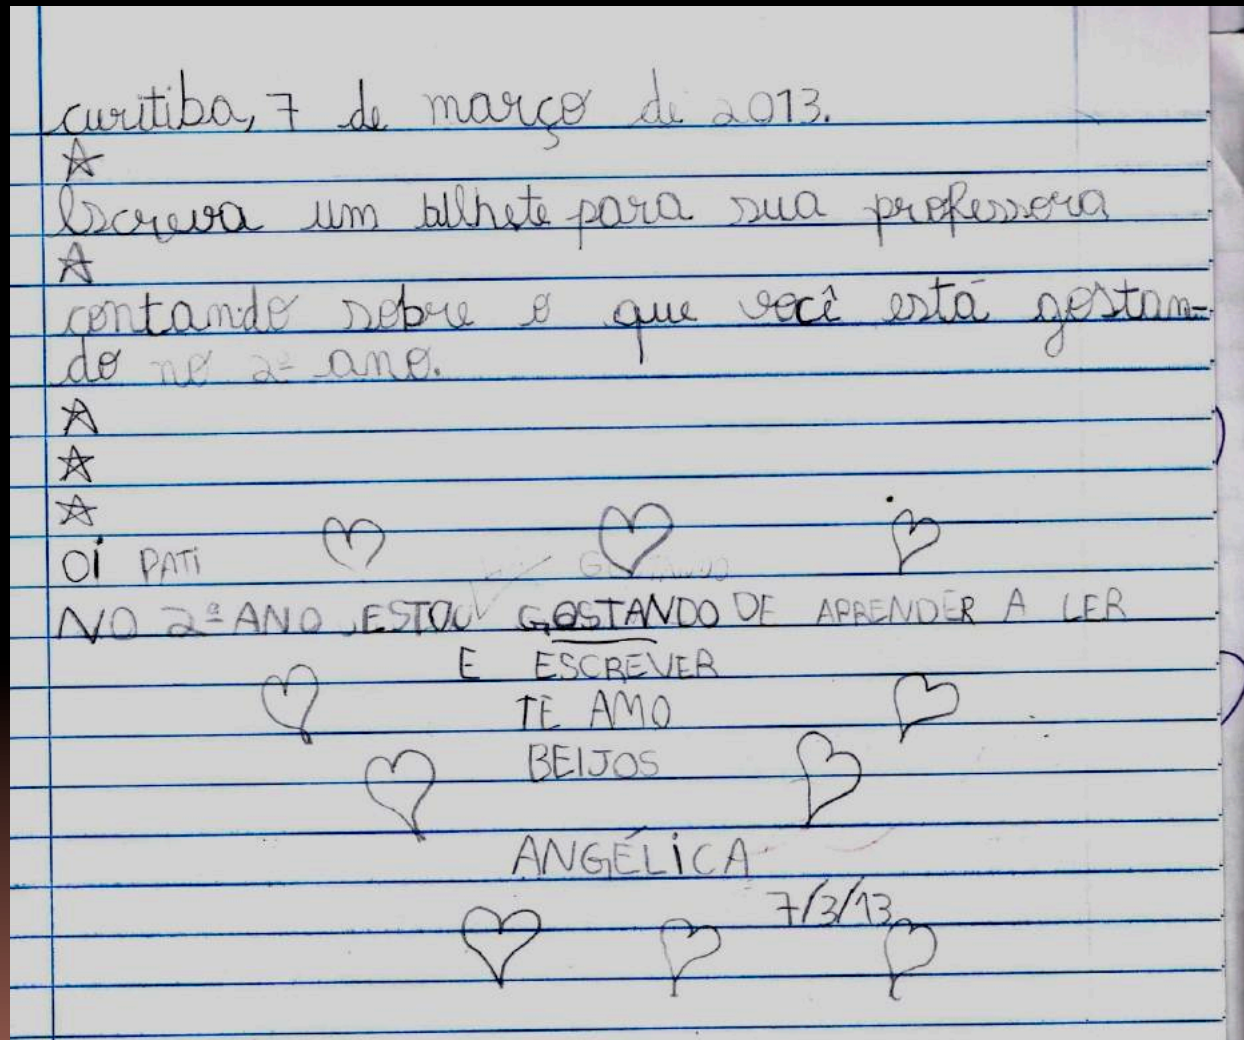 curitiba, 7 de março de 2013.
Escreva um bilhete para sua professora
contando sobre o que você está gostan-
do no 2º ano.
OI PATI
NO 2º ANO ESTOU GOSTANDO DE APRENDER A LER
E ESCREVER
TE AMO
BEIJOS
ANGÉLICA
7/3/13